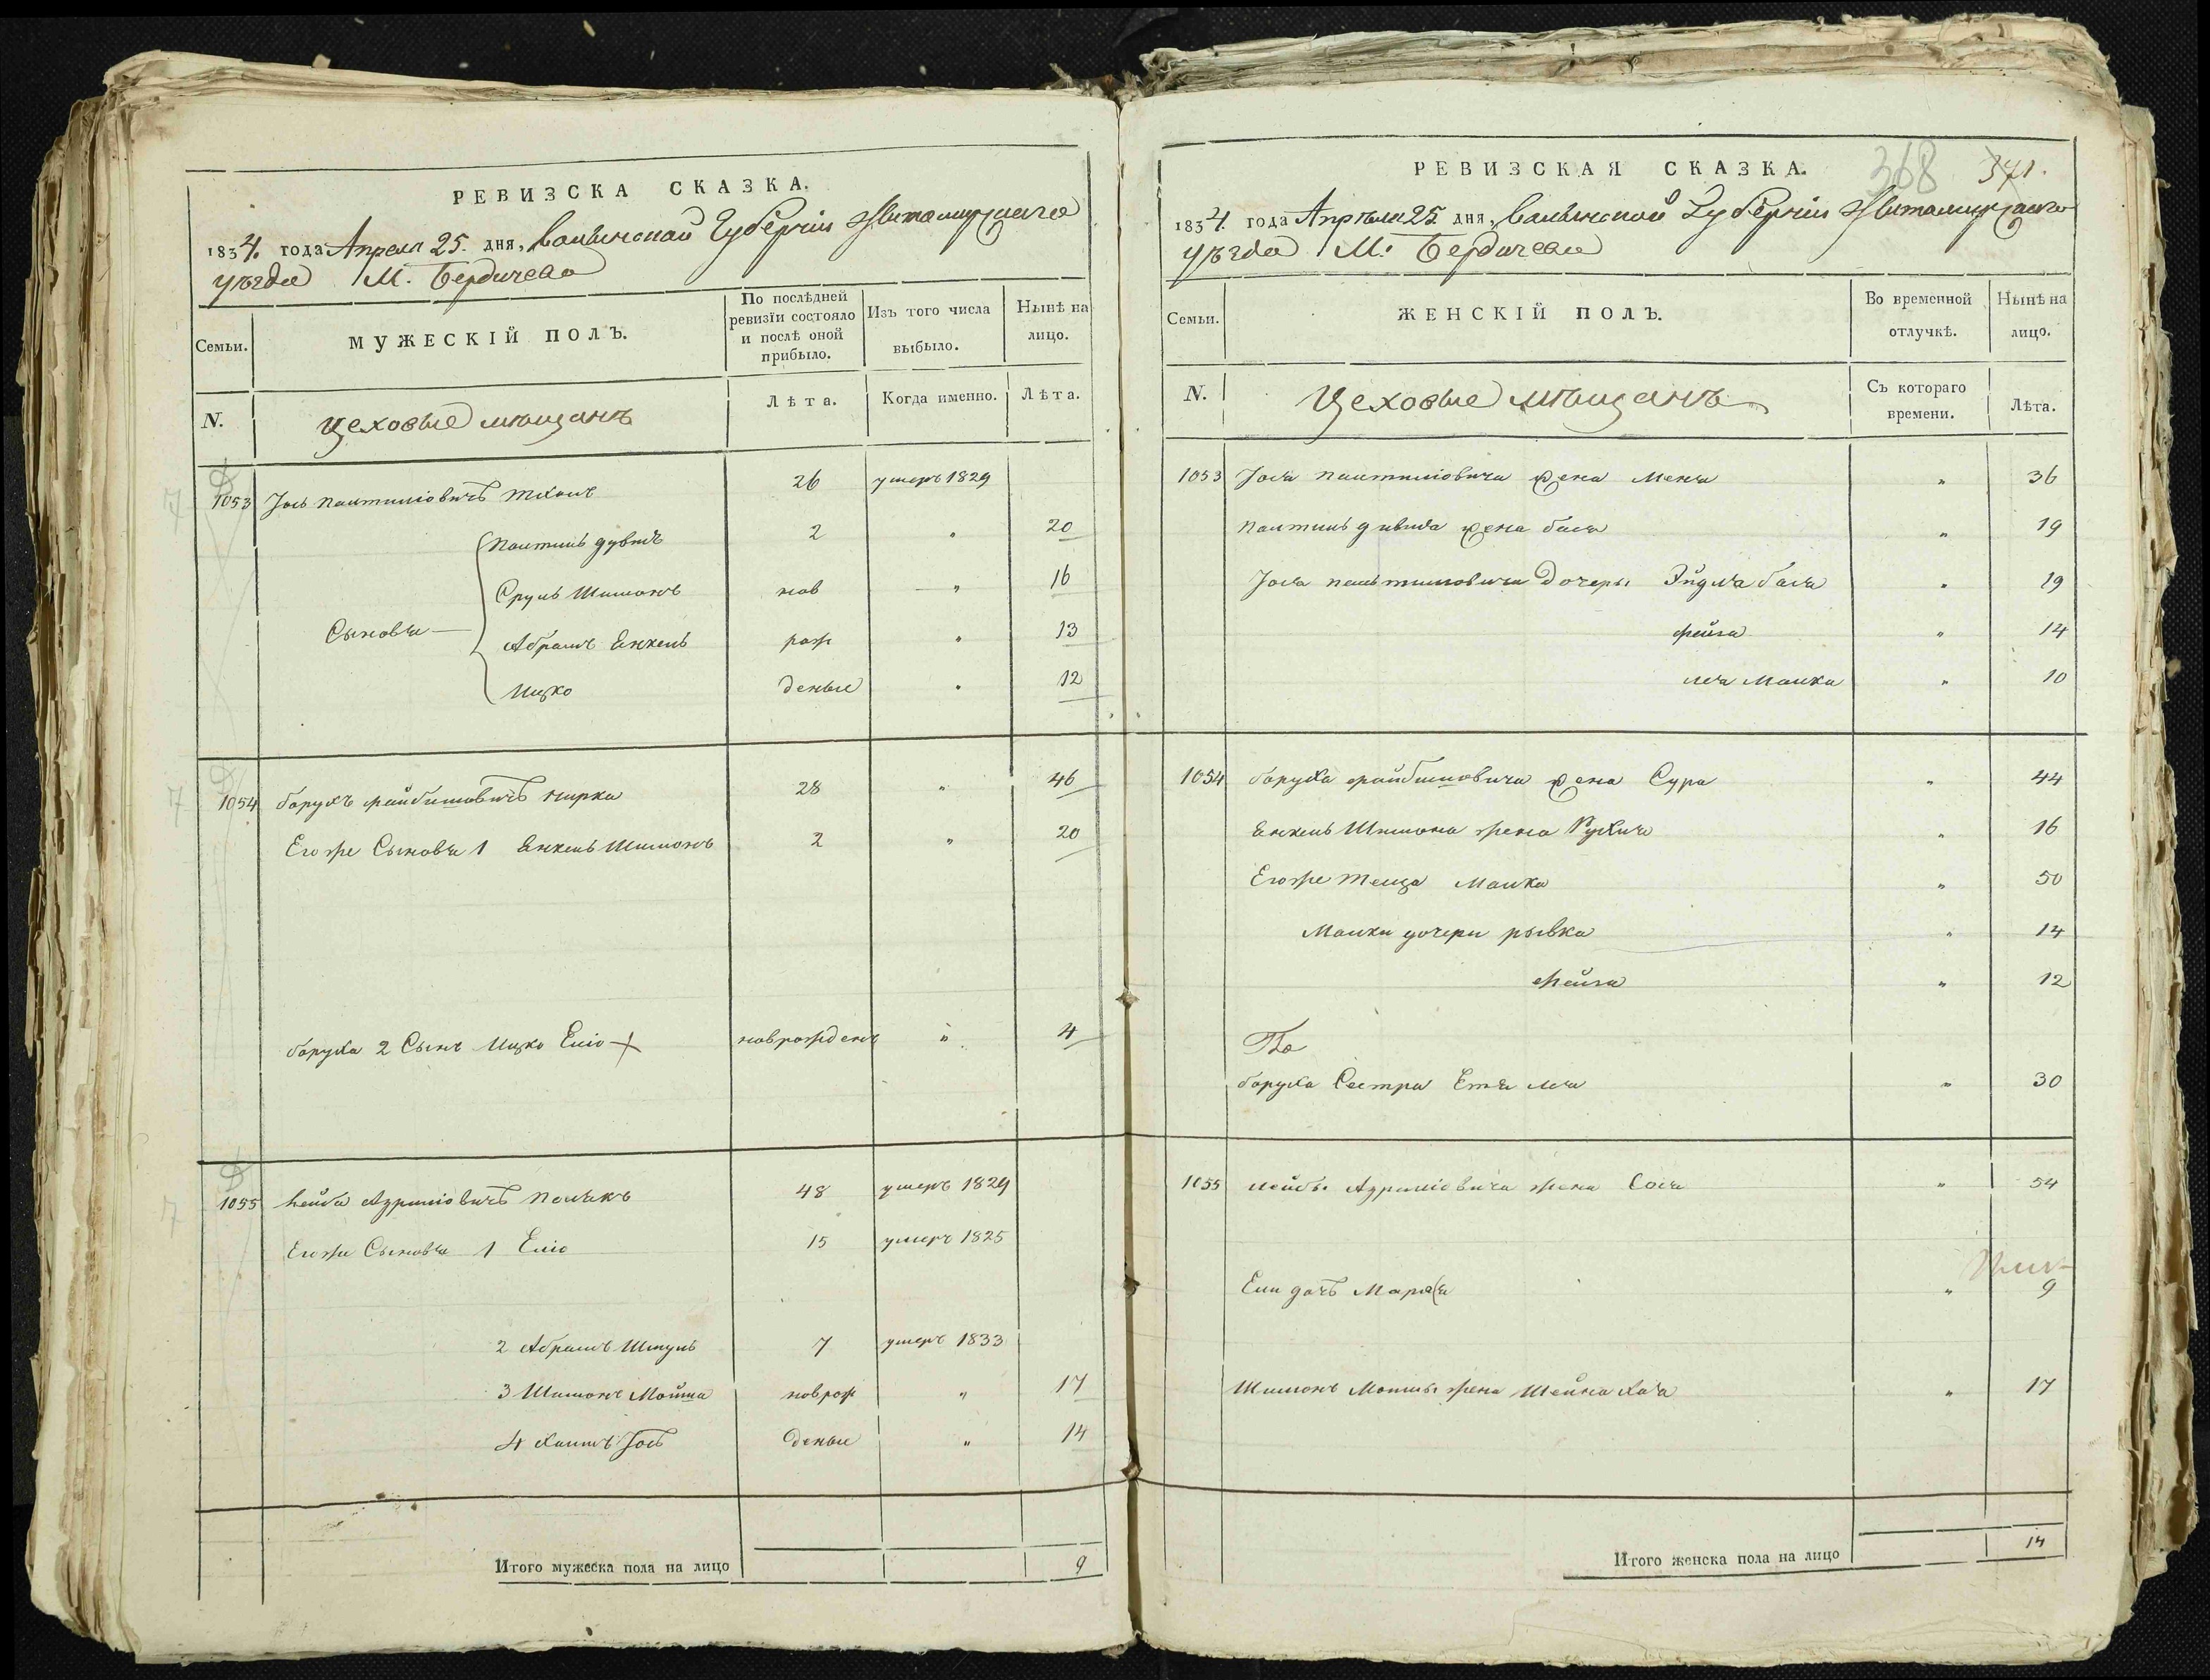 РЕВИЗСКА СКАЗКА.
1834. года Апреля 25. дня, Волынской Губерніи Житомирскаго
уѣзда М. Бердичева
Семьи.
МУЖЕСКІЙ ПОЛЪ.
По послѣдней ревизіи состояло и послѣ оной прибыло.
Изъ того числа выбыло.
Нынѣ на лицо.
N.
Цеховые мѣщанъ
Лѣта.
Когда именно.
Лѣта.
1053 Іось 26 умеръ 1829
2 " 20
Сруль Шимонъ нов " 16
Сыновья
Абрамъ Янкель рож " 13
Ицко денные " 12
1054 Борухъ Файбишовичъ 28 " 46
Его же Сыновья 1 Янкель Шимонъ 2 " 20
Боруха 2 Сынъ Ицко Еліо + новрожденъ " 4
1055 Лейба Полякъ 48 умеръ 1829
Его же Сыновья 1 Еліо 15 умеръ 1825
2 Абрамъ Шмуль 7 умеръ 1833
3 Шимонъ Мошка новрож " 17
4 Хаимъ Іось денные " 14
Итого мужеска пола на лицо 9
РЕВИЗСКАЯ СКАЗКА.
368 371.
1834. года Апрѣля 25 дня, Волынской Губерніи Житомирскаго
уѣзда М. Бердичева
Семьи.
ЖЕНСКІЙ ПОЛЪ.
Во временной отлучкѣ.
Нынѣ на лицо.
N.
Цеховые мѣщанъ
Съ котораго времени.
Лѣта.
1053 Іося жена Меня " 36
жена Бася " 19
Іося Дочеры Эйдля Бася " 19
Фейга " 14
Лея Малка " 10
1054 Боруха Файбишовича жена Сура " 44
Янкель Шимона жена Рухля " 16
Его же теща Малка " 50
Малки дочери Рывка " 14
Фейга " 12
Боруха Сестра Етя Лея " 30
1055 Лейбы жена Сося " 54
Ели дочъ " 9
Шимонъ Мошки жена Шейна Хая " 17
Итого женска пола на лицо 14